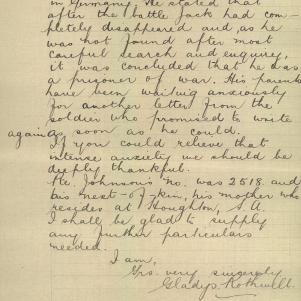 in Germany. He stated that
after the battle Jack had com-
pletely disappeared and, as he
was not found after most
careful search and enquiry,
it was concluded that he was
a prisoner of war. His parents
have been waiting anxiously
for another letter from the
soldier who promised to write
again as soon as he could.
If you could relieve that
intense anxiety we should be
deeply thankful.
Pte. Johnson's no. was 2518. and
his next-of-kin, his mother who
resides at Houghton, S.A.
I shall be glad to supply
any further particulars
needed.
I am,
Yrs. very sincerely
Gladys Rothwell.